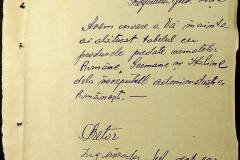 Avem onoare a Vă înainta
alăturat tabelul cu
produsele predate armatelor
Române, Germane și Italiene
dela începutul administrației
Românești.
Pretor